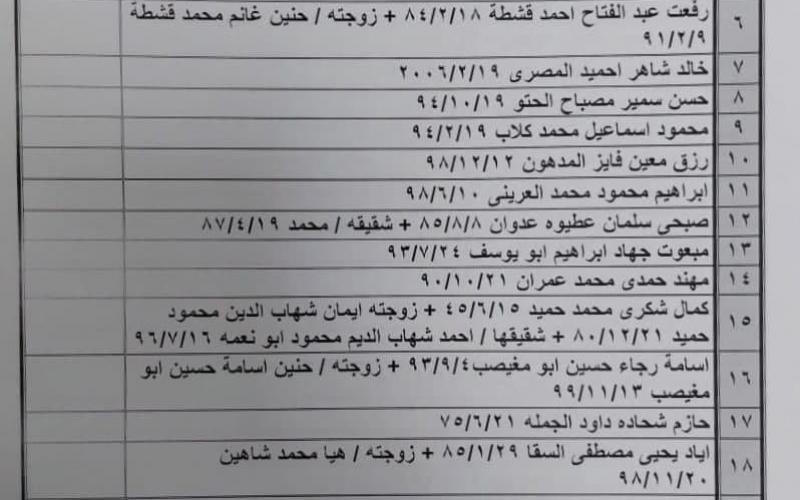 ٦ رفعت عبد الفتاح احمد قشطة ٨٤/٢/١٨ + زوجته / حنين غانم محمد قشطة
٩١/٢/٩
٧ خالد شاهر احميد المصرى ٢٠٠٦/٢/١٩
٨ حسن سمير مصباح الحتو ٩٤/١٠/١٩
٩ محمود اسماعيل محمد كلاب ٩٤/٢/١٩
١٠ رزق معين فايز المدهون ٩٨/١٢/١٢
١١ ابراهيم محمود محمد العرينى ٩٨/٦/١٠
١٢ صبحى سلمان عطيوه عدوان ٨٥/٨/٨ + شقيقه / محمد ٨٧/٤/١٩
١٣ مبعوت جهاد ابراهيم ابو يوسف ٩٣/٧/٢٤
١٤ مهند حمدى محمد عمران ٩٠/١٠/٢١
١٥ كمال شكرى محمد حميد ٤٥/٦/١٥ + زوجته ايمان شهاب الدين محمود
حميد ٨٠/١٢/٢١ + شقيقها / احمد شهاب الديم محمود ابو نعمه ٩٦/٧/١٦
١٦ اسامة رجاء حسين ابو مغيصب٩٣/٩/٤ + زوجته / حنين اسامة حسين ابو
مغيصب ٩٩/١١/١٣
١٧ حازم شحاده داود الجمله ٧٥/٦/٢١
١٨ اياد يحيى مصطفى السقا ٨٥/١/٢٩ + زوجته / هيا محمد شاهين
٩٨/١١/٢٠